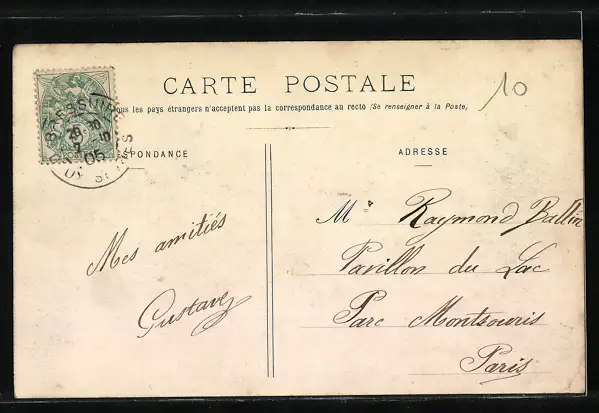 CARTE POSTALE
10
ous les pays étrangers n'acceptent pas la correspondance au recto (Se renseigner à la Poste)
BRESSUIRE
28
7
05
PONDANCE
ADRESSE
Mes amitiés
Gustave
Mr Raymond Ballin
Pavillon du Lac
Parc Montsouris
Paris